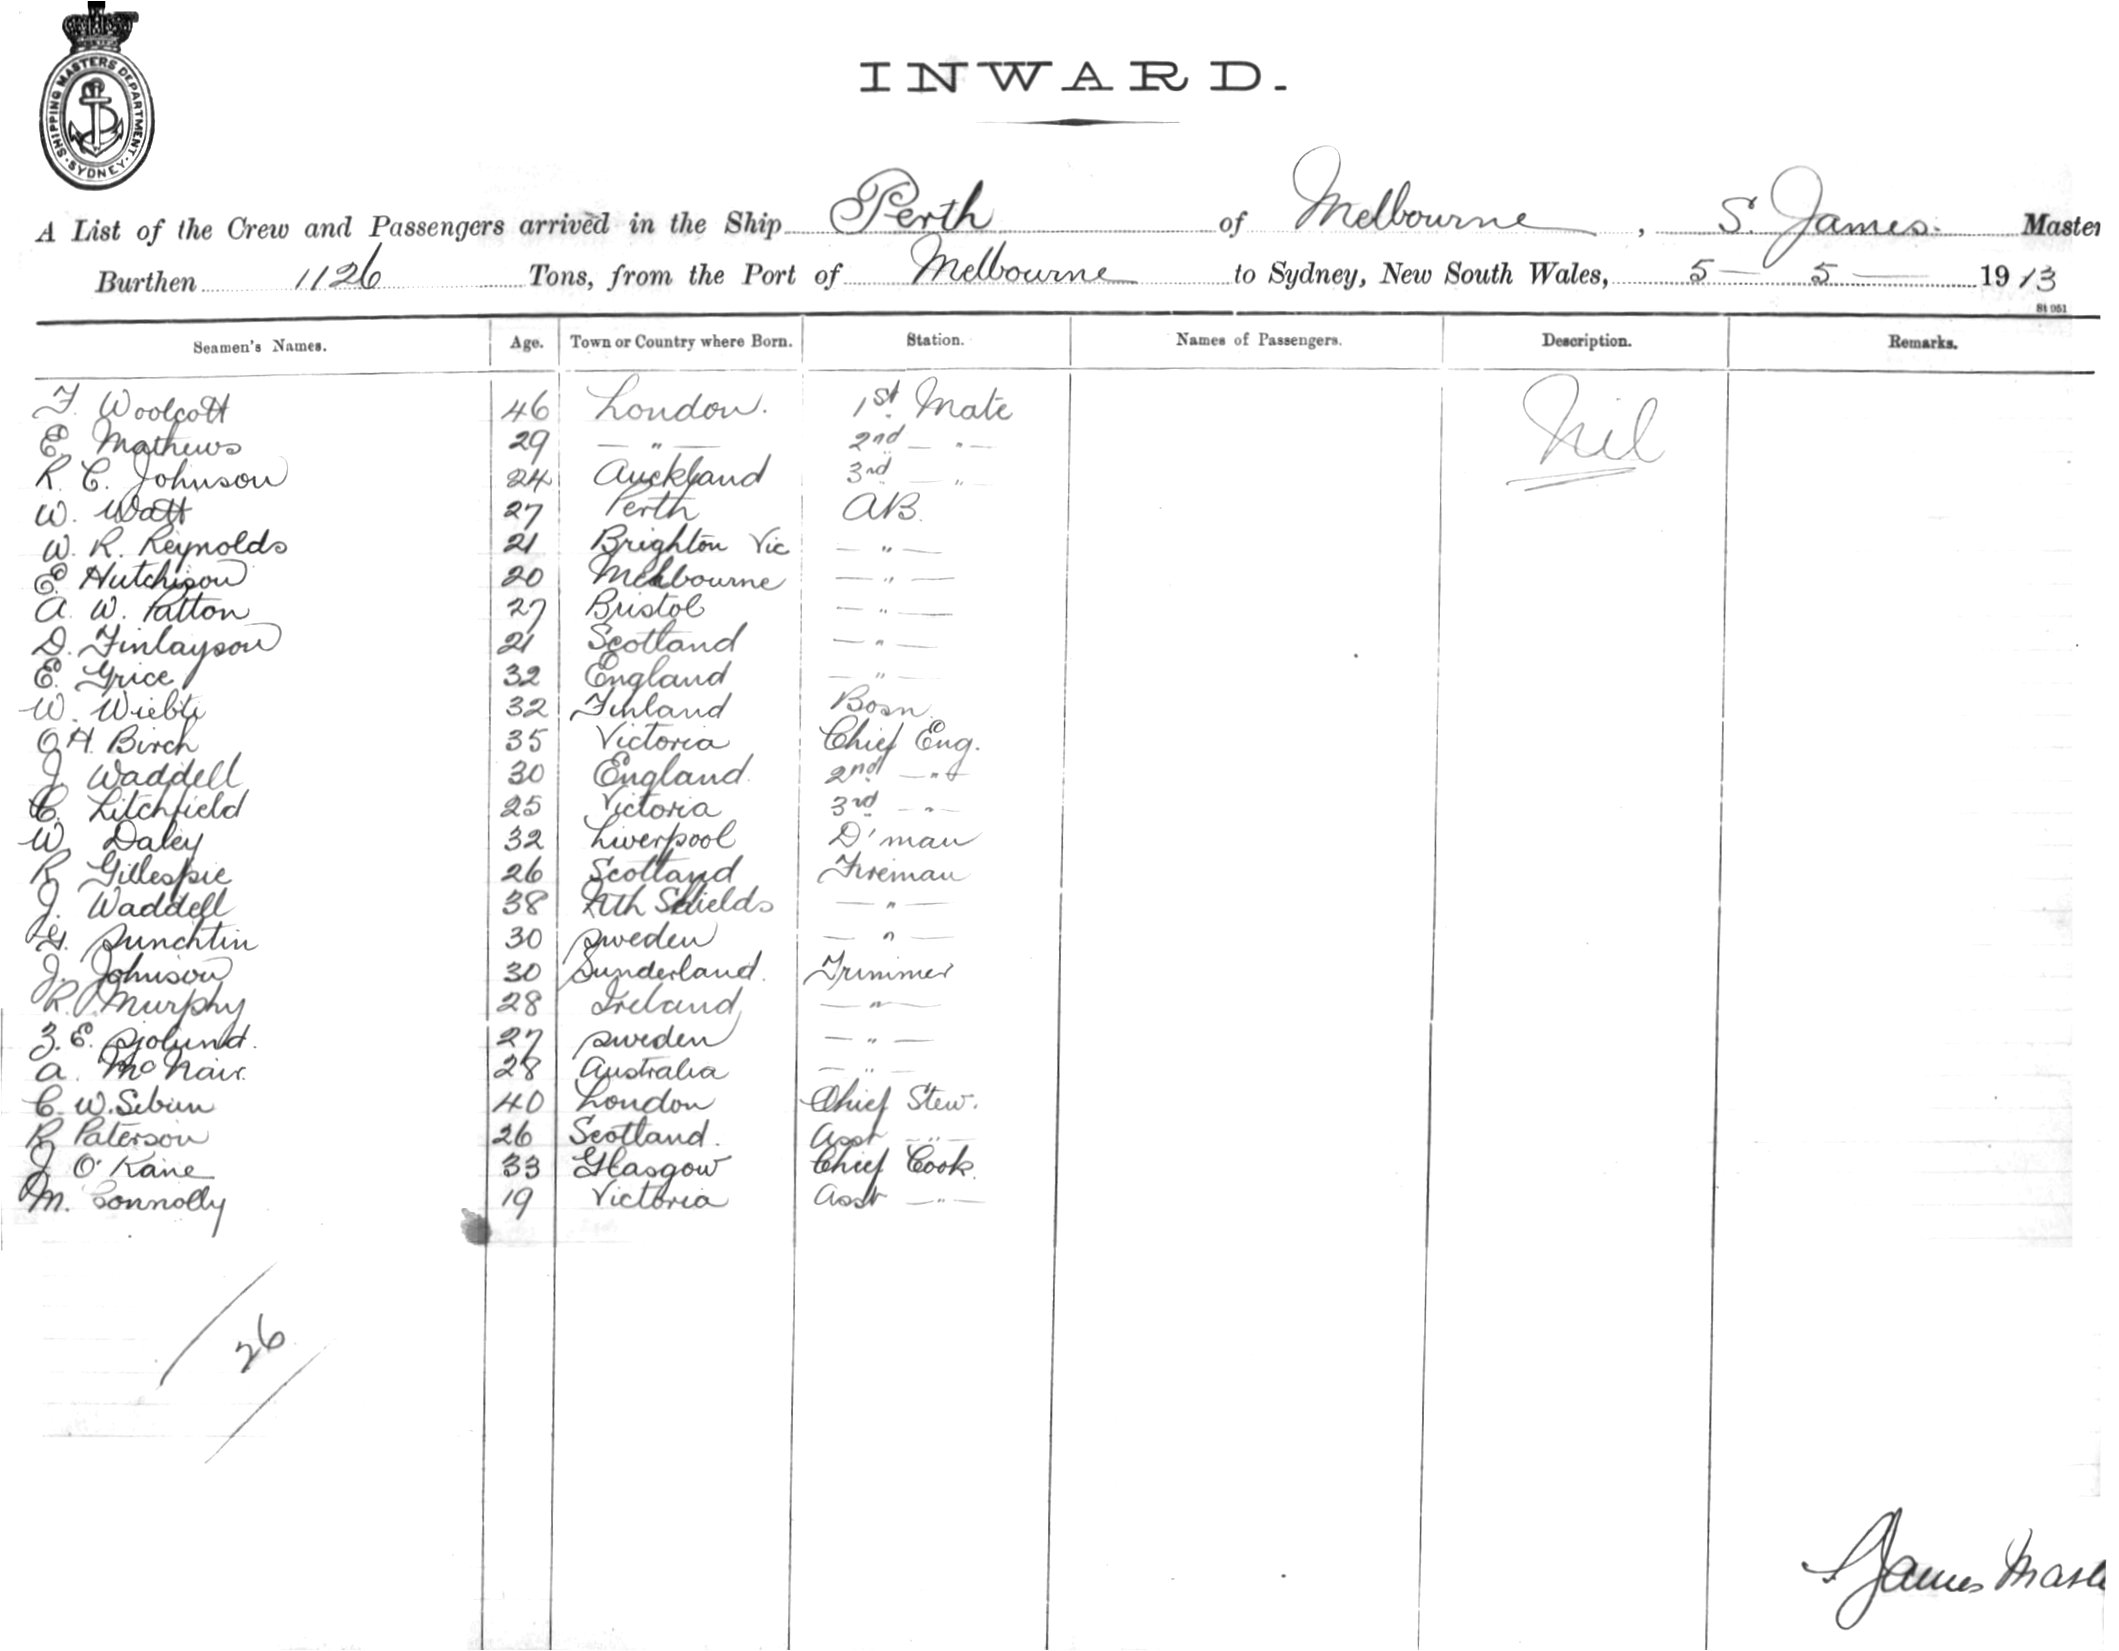 SHIPPING MASTERS DEPARTMENT. SYDNEY.
INWARD.
A List of the Crew and Passengers arrived in the Ship Perth of Melbourne, S. James. Master
Burthen 1126 Tons, from the Port of Melbourne to Sydney, New South Wales, 5 — 5 — 1913
St 951
Seamen's Names. Age. Town or Country where Born. Station. Names of Passengers. Description. Remarks.
F. Woolcott 46 London. 1st Mate Nil
E. Mathews 29 — " — 2nd — " —
R. C. Johnson 24 Auckland 3rd — "
W. Watt 27 Perth AB.
W. R. Reynolds 21 Brighton Vic — " —
E. Hutchison 20 Melbourne — " —
A. W. Patton 27 Bristol — " —
D. Finlayson 21 Scotland — " —
E. Grice 32 England — " —
W. 32 Finland Bosn
H. Birch 35 Victoria Chief Eng.
J. Waddell 30 England. 2nd — " —
C. Litchfield 25 Victoria 3rd — " —
W. Daley 32 Liverpool D'man
R. Gillespie 26 Scotland Fireman
J. Waddell 38 Nth Shields — " —
G. 30 Sweden — " —
J. Johnson 30 Sunderland. Trimmer
R. Murphy 28 Ireland — " —
E. Sjolund. 27 Sweden — " —
A. McNair. 28 Australia — " —
C. W. 40 London Chief Stew.
R Paterson 26 Scotland. Asst — " —
J O'Kane 33 Glasgow Chief Cook.
M. Connolly 19 Victoria Asst — " —
26
S James Maste